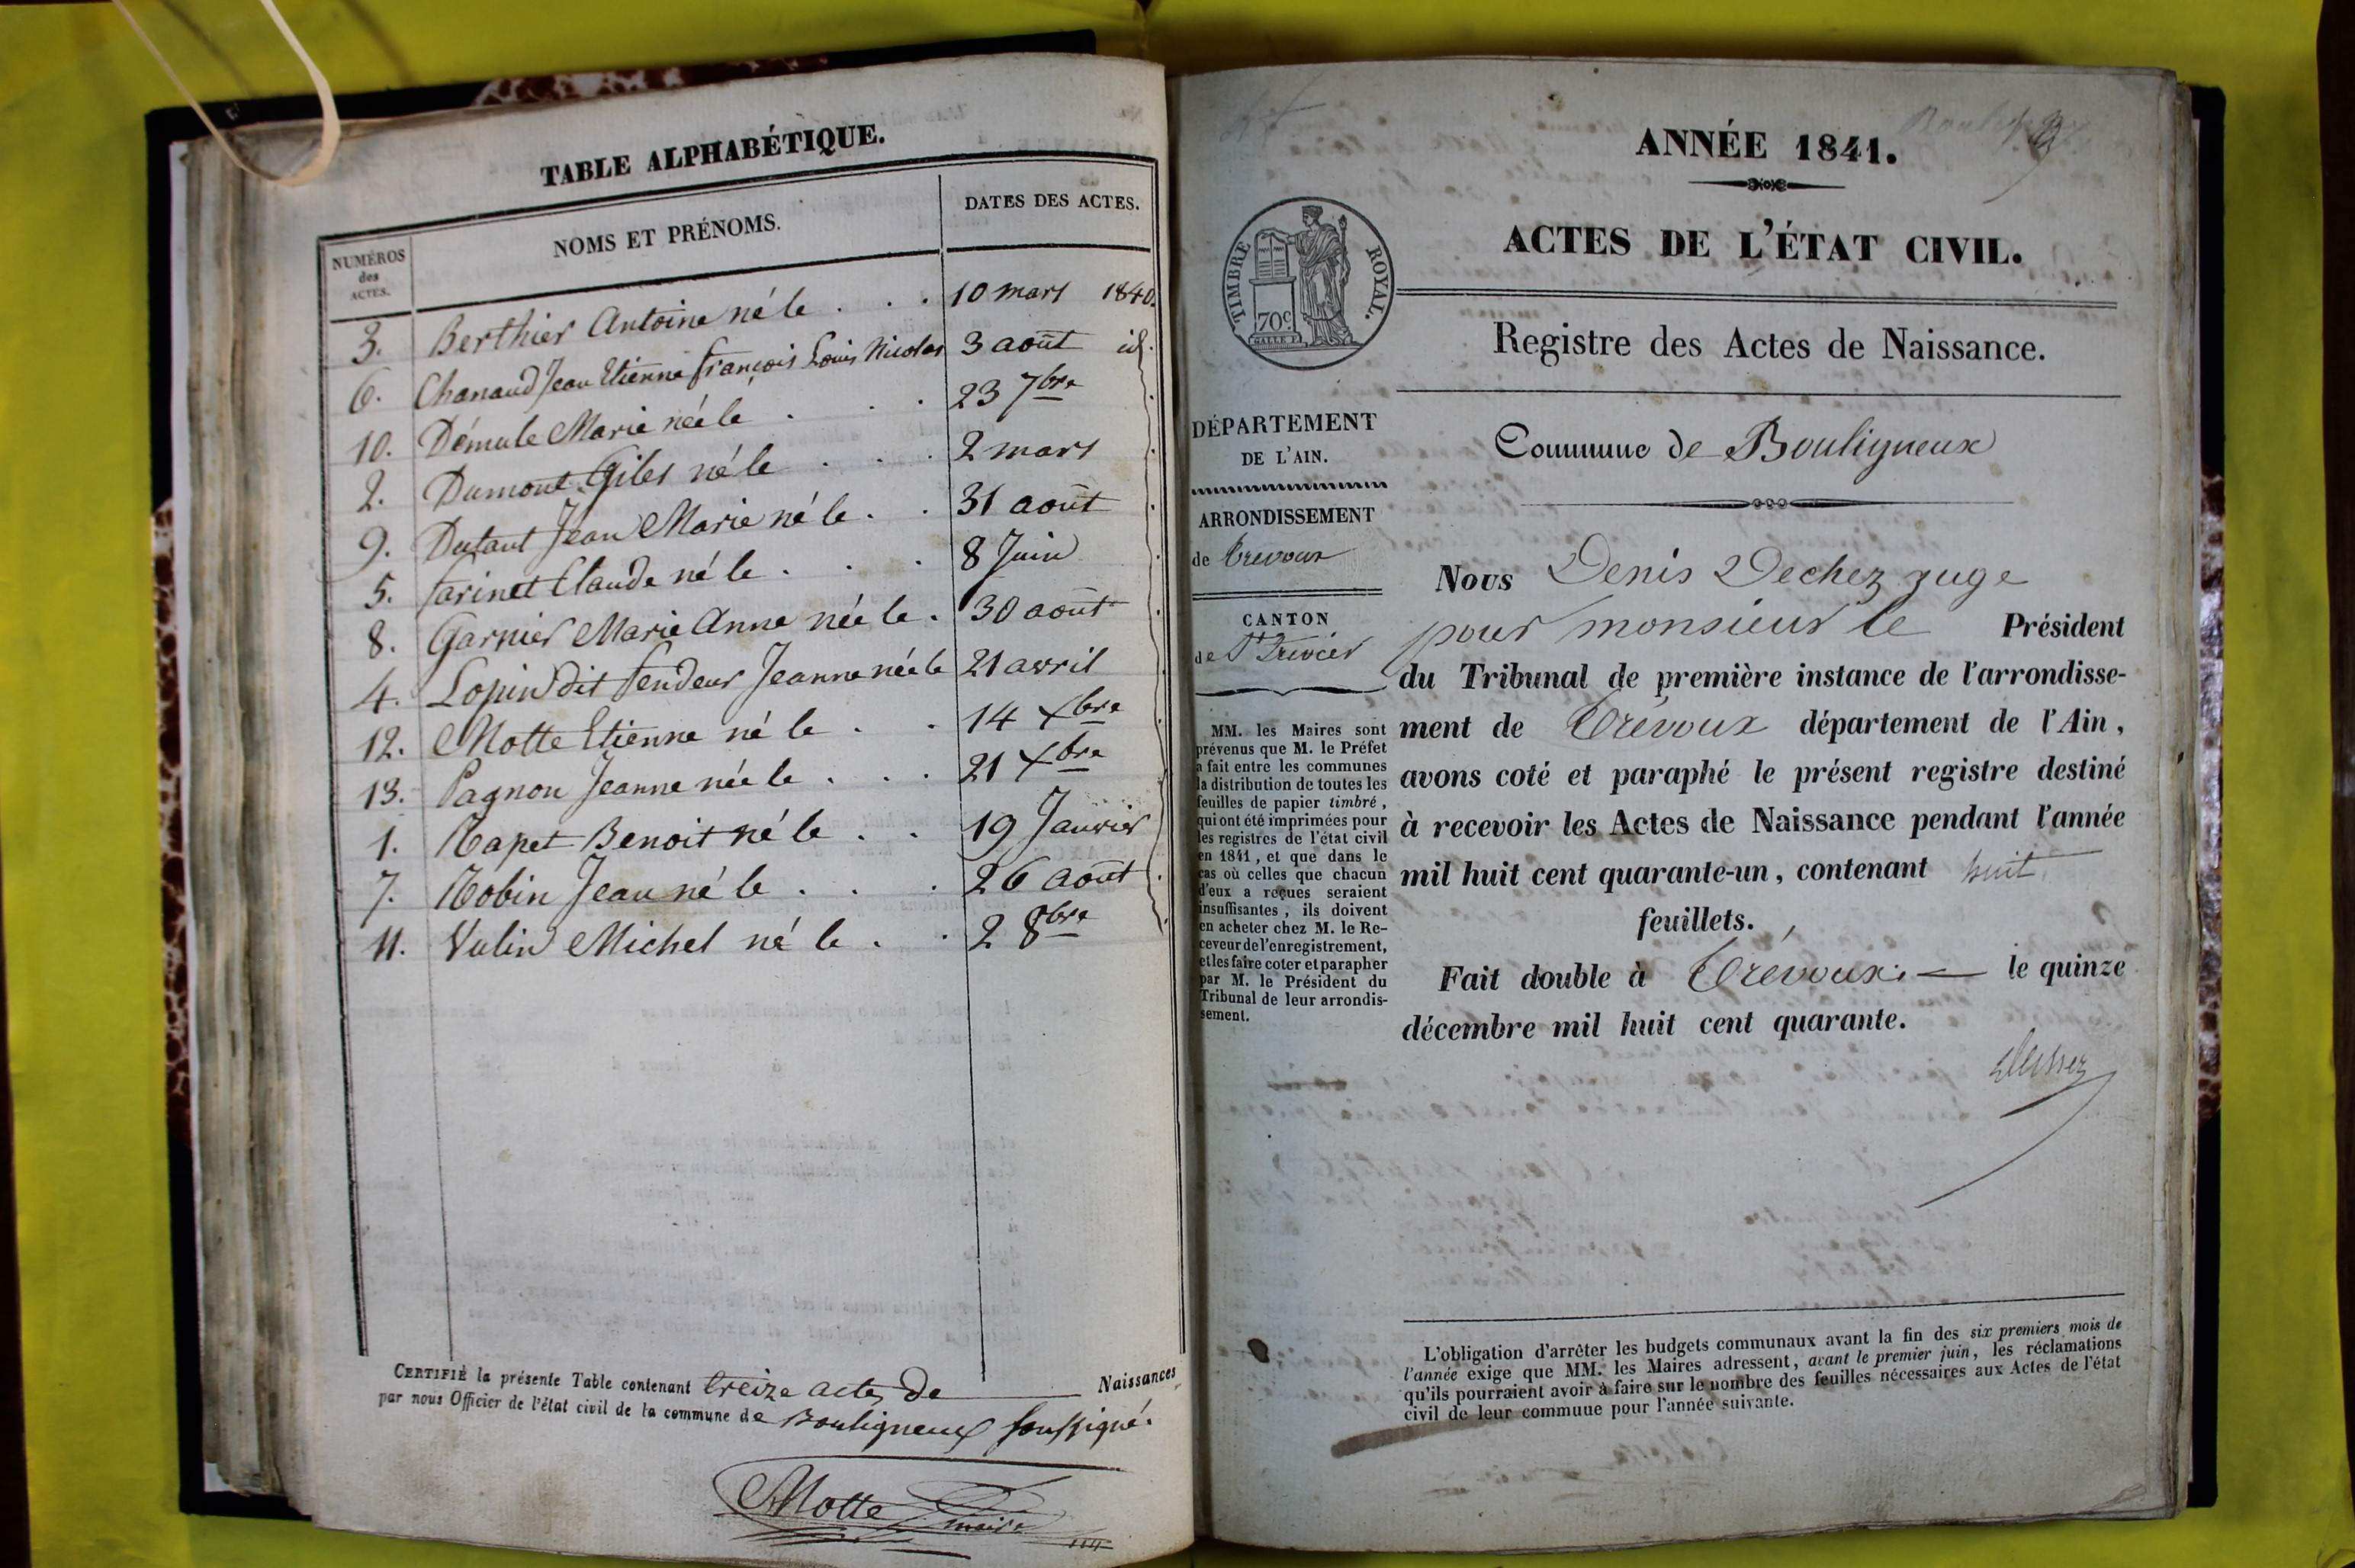 TABLE ALPHABÉTIQUE.
NUMÉROS des ACTES. NOMS ET PRÉNOMS. DATES DES ACTES.
3. Berthier Antoine né le . . . 10 mars 1840.
6. Chanaud Jean Etienne françois Louis Nicolas 3 août id.
10. Démule Marie née le . . . 23 7bre
2. Dumont Giles né le . . . 2 mars
9. Dutant Jean Marie né le . . 31 août
5. farinet Claude né le . . . 8 Juin
8. Garnier Marie Anne née le . 30 août
4. Lopin dit fendeur Jeanne née le 21 avril
12. Motte Etienne né le . . 14 Xbre
13. Pagnon Jeanne née le . . . 21 Xbre
1. Tapet Benoit né le . . 19 Janvier
7. Tobin Jean né le . . . 26 août
11. Vulin Michel né le . . 2 8bre
CERTIFIÉ la présente Table contenant treize actes de Naissances
par nous Officier de l'état civil de la commune de Bouligneux soussigné.
Motte maire
ANNÉE 1841.
ACTES DE L'ÉTAT CIVIL.
TIMBRE ROYAL.
70c
Registre des Actes de Naissance.
Commune de Bouligneux
DÉPARTEMENT
DE L'AIN.
ARRONDISSEMENT
de Trevoux
CANTON
de St Trivier
MM. les Maires sont
prévenus que M. le Préfet
a fait entre les communes
la distribution de toutes les
feuilles de papier timbré,
qui ont été imprimées pour
les registres de l'état civil
en 1841, et que dans le
cas où celles que chacun
d'eux a reçues seraient
insuffisantes, ils doivent
en acheter chez M. le Re-
ceveur de l'enregistrement,
et les faire coter et parapher
par M. le Président du
Tribunal de leur arrondis-
sement.
Nous Denis Dechez juge
pour monsieur le Président
du Tribunal de première instance de l'arrondisse-
ment de Trévoux département de l'Ain,
avons coté et paraphé le présent registre destiné
à recevoir les Actes de Naissance pendant l'année
mil huit cent quarante-un, contenant huit
feuillets.
Fait double à Trévoux. — le quinze
décembre mil huit cent quarante.
L'obligation d'arrêter les budgets communaux avant la fin des six premiers mois de
l'année exige que MM. les Maires adressent, avant le premier juin, les réclamations
qu'ils pourraient avoir à faire sur le nombre des feuilles nécessaires aux Actes de l'état
civil de leur commune pour l'année suivante.